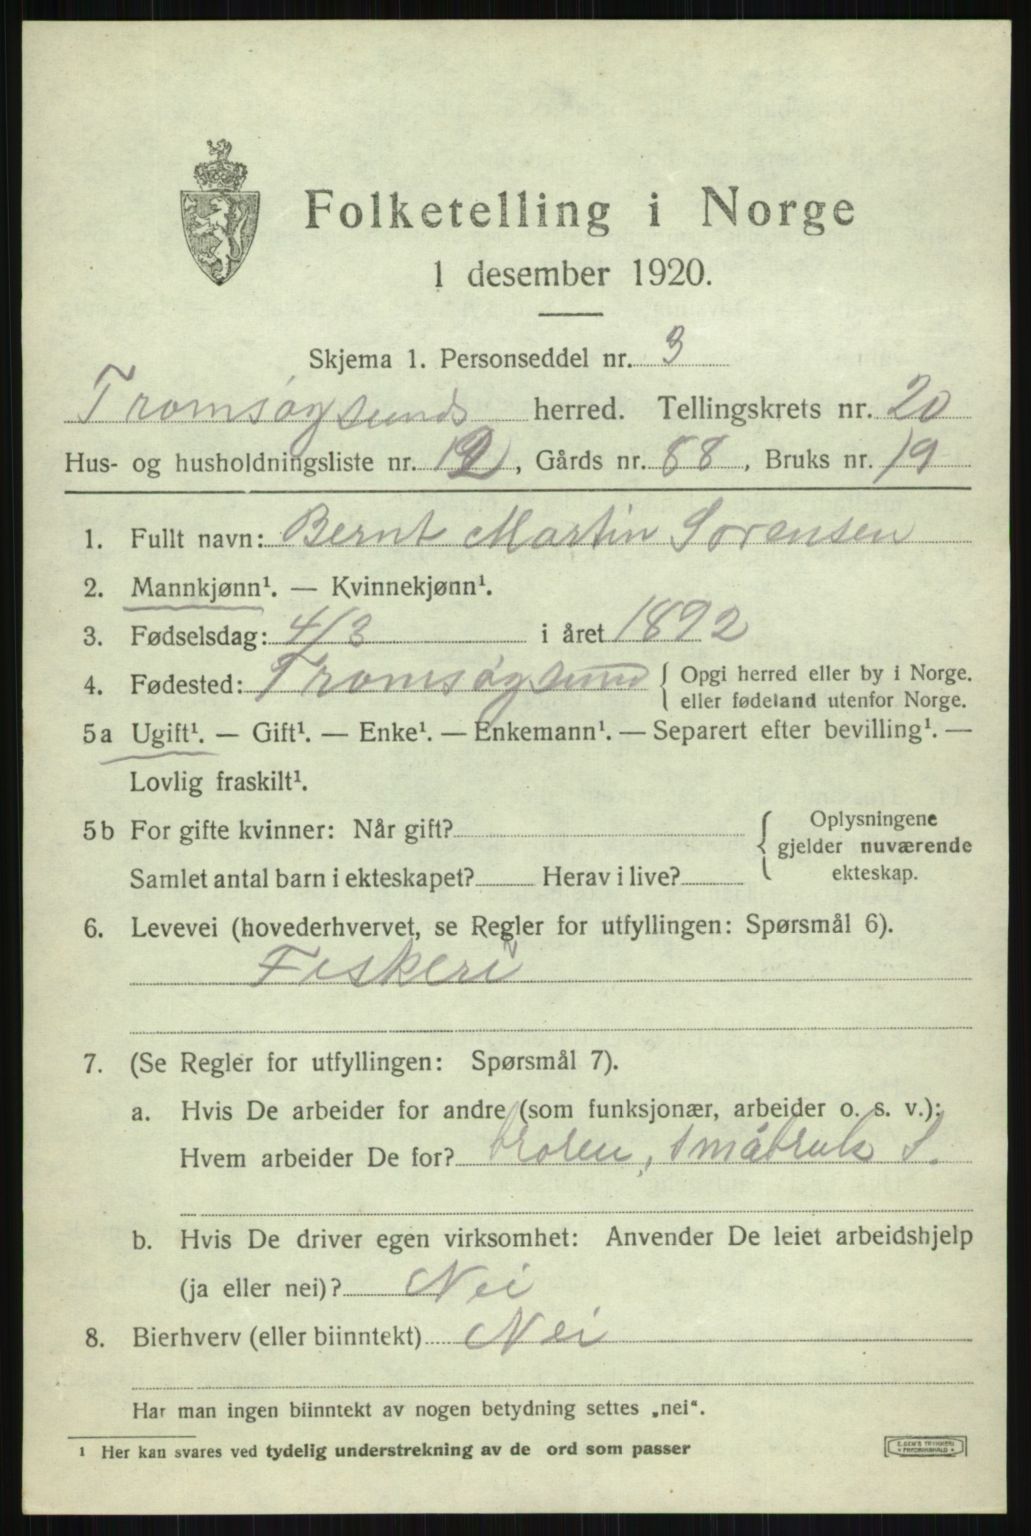 Folketelling i Norge
1 desember 1920.
Skjema 1. Personseddel nr. 3
Tromsøysunds herred. Tellingskrets nr. 20
Hus- og husholdningsliste nr. 12, Gårds nr. 88, Bruks nr. 19
1. Fullt navn: Bernt Martin Sørensen
2. Mannkjønn¹. — Kvinnekjønn¹.
3. Fødselsdag: 4/3 i året 1892
4. Fødested: Tromsøysund { Opgi herred eller by i Norge.
eller fødeland utenfor Norge.
5a Ugift¹. — Gift¹. — Enke¹. — Enkemann¹. — Separert efter bevilling¹. —
Lovlig fraskilt¹.
5b For gifte kvinner: Når gift?
Samlet antal barn i ekteskapet? Herav i live?
{ Oplysningene
gjelder nuværende
ekteskap.
6. Levevei (hovederhvervet, se Regler for utfyllingen: Spørsmål 6).
Fiskeri
7. (Se Regler for utfyllingen: Spørsmål 7).
a. Hvis De arbeider for andre (som funksjonær, arbeider o. s. v.):
Hvem arbeider De for? broren, småbruk S.
b. Hvis De driver egen virksomhet: Anvender De leiet arbeidshjelp
(ja eller nei)? Nei
8. Bierhverv (eller biinntekt) Nei
Har man ingen biinntekt av nogen betydning settes „nei“.
¹ Her kan svares ved tydelig understrekning av de ord som passer
E. SEM'S TRYKKERI
FREDRIKSHALD